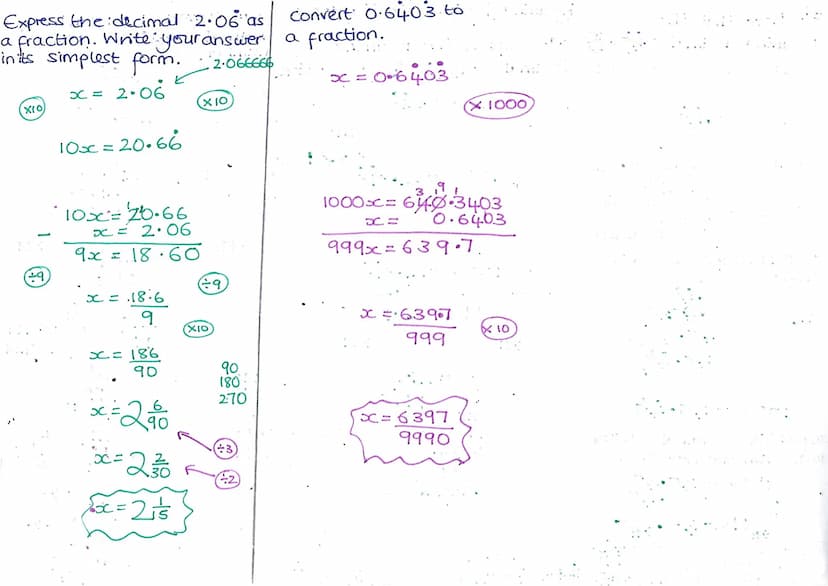 Express the decimal 2.06̇ as
a fraction. Write your answer
in its simplest form.
2.066666
x = 2.06̇
×10
×10
10x = 20.66̇
10x = 20.66
− x = 2.06
9x = 18.60
÷9
÷9
x = 18.6/9
×10
x = 186/90
90
180
270
x = 2 6/90
÷3
x = 2 2/30
÷2
x = 2 1/15
Convert 0.64̇03̇ to
a fraction.
x = 0.64̇0̇3̇
× 1000
3 9 1
1000x = 640.3403
x = 0.6403
999x = 639.7
x = 639.7/999
× 10
x = 6397/9990